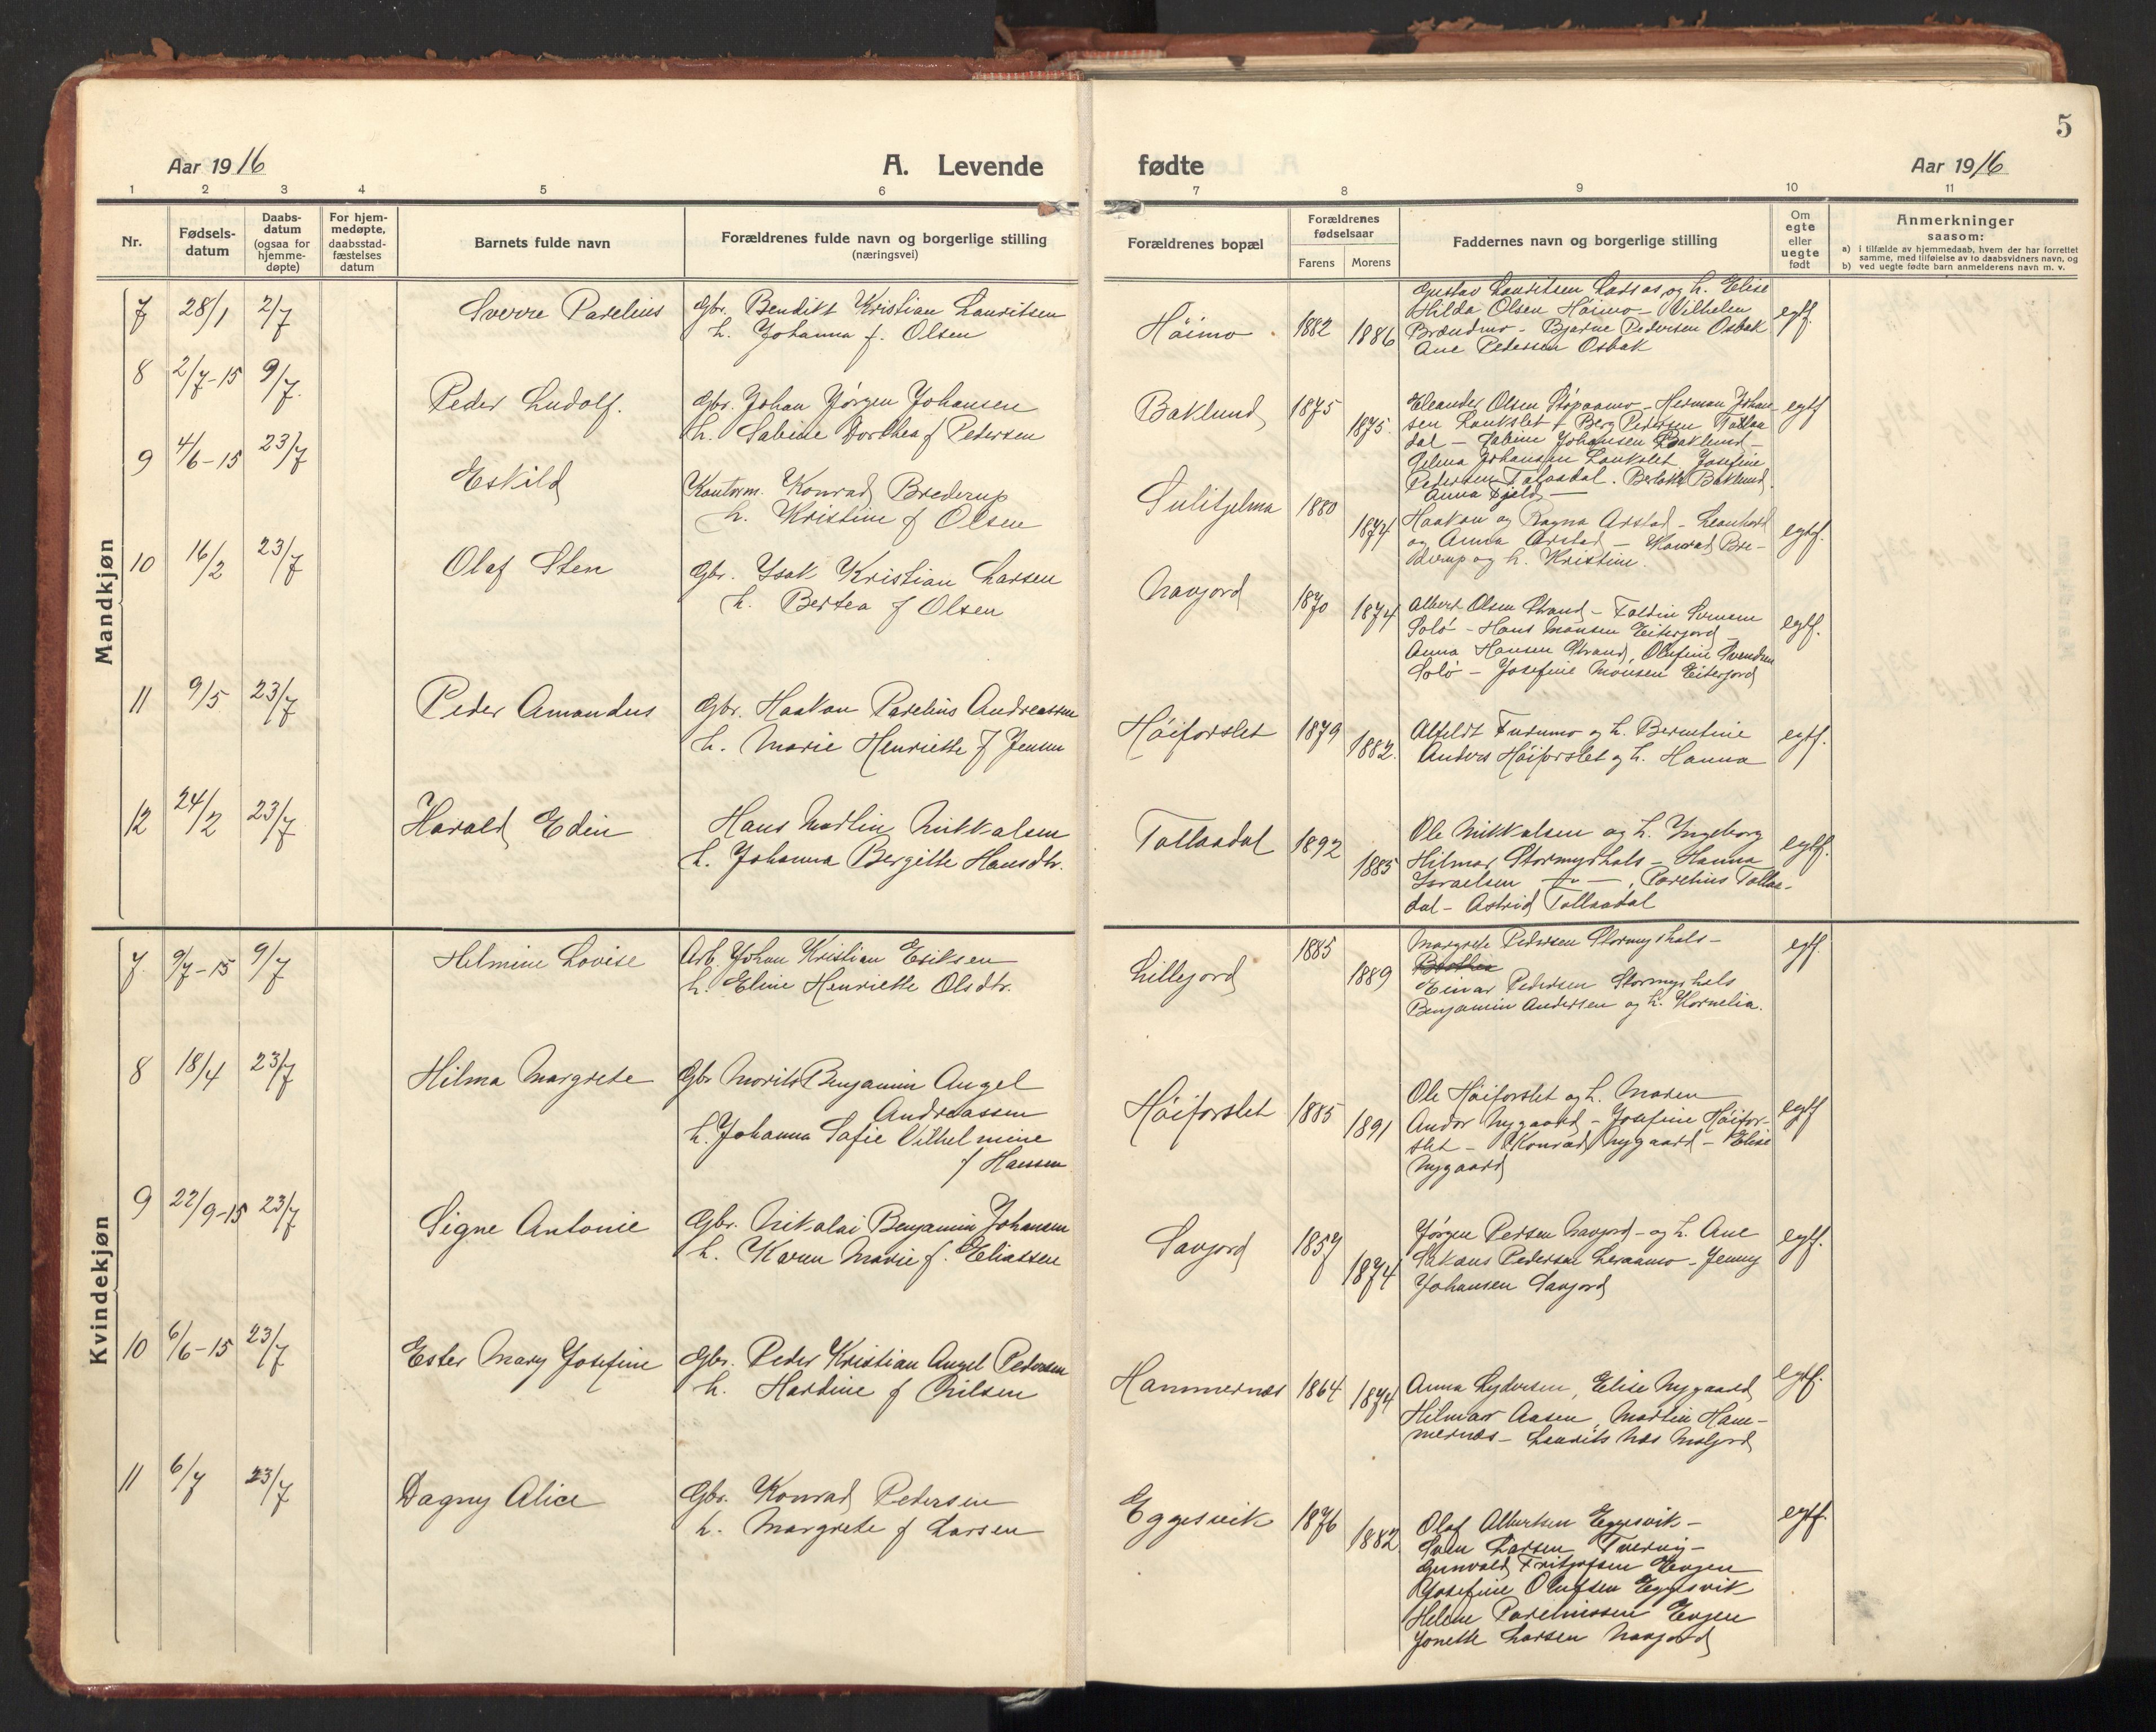 5
Aar 1916
A. Levende
fødte
Aar 1916
1 2 3 4 5 6 7 8 9 10 11
Nr.
Fødsels-
datum
Daabs-
datum
(ogsaa for
hjemme-
døpte)
For hjem-
medøpte,
daabsstad-
fæstelses
datum
Barnets fulde navn
Forældrenes fulde navn og borgerlige stilling
(næringsvei)
Forældrenes bopæl
Forældrenes
fødselsaar
Farens Morens
Faddernes navn og borgerlige stilling
Om
egte
eller
uegte
født
Anmerkninger
saasom:
a) i tilfælde av hjemmedaab, hvem der har forrettet
samme, med tilføielse av to daabsvidners navn, og
b) ved uegte fødte barn anmelderens navn m. v.
Mandkjøn
7 28/1 2/7 Sverre Parelius Gbr. Bendikt Kristian Lauritsen
h. Johanna f. Olsen
Høimo 1882 1886
Gustav Lauritsen og h. Elise
Hilda Olsen Høimo - Vilhelm
Brændmo - Bjarne Pedersen Osbak
Ane Pedersen Osbak
egtf.
8 2/7-15 9/7. Peder Ludolf. Gbr. Johan Jørgen Johansen
h. Sabine Dorthea f Pedersen
Baklund 1875 1875.
Eleander Olsen - Herman Johan
sen Lankslet + Berg Pedersen Tollaa
dal - Sabine Johansen Baklund -
Gelina Johansen Lankslet Josefine
Pedersen Tollaadal. Baklund.
Anna Fjeld -
egtf
9 4/6-15 23/7 Eskild Kontorm. Konrad Brederup
h. Kristine f Olsen
Sulitjelma 1880 1874
Haakon og Ragna Arstad - Leonhard
og Anna Arstad - Konrad Bre-
derup og h. Kristine.
egtf.
10 16/2 23/7 Olaf Sten Gbr. Isak Kristian Larsen
h. Bertea f Olsen
Navjord 1870 1874
Albert Olsen Strand - Faldin
Solø - Hans Monsen Eiterjord -
Anna Hansen Strand, Olufine Svendsen
Solø - Josefine Monsen Eiterjord
egtf.
11 9/5 23/7 Peder Amandus Gbr. Haakon Parelius Andreassen
h. Marie Henriette f Jensen
Høiforslet 1879 1882.
Alfeldt Furumo og h. Berntine
Anders Høiforslet og h. Hanna
egtf.
12 24/2 23/7 Harald Edin Hans Martin Mikkalsen
h. Johanna Bergitte Hansdtr.
Tollaadal 1892 1885
Ole Mikkalsen og h. Yngeborg
Hilmar Stormyrhals - Hanna
Israelsen -"-, Parelius Tollaa-
dal - Astrid Tollaadal
egtf.
Kvindekjøn
7. 9/7-15 9/7 Helmine Lovise Arb. Johan Kristian Eriksen
h. Eline Henriette Olsdtr.
Lillejord 1885 1889
Margrete Pedersen Stormyrhals -
Einar Pedersen Stormyrhals
Benjamin Andersen og h. Kornelia.
egtf.
8 18/4 23/7 Hilma Margrete Gbr Morits Benjamin Angel
Andreassen
h. Johanna Sofie Vilhelmine
f Hansen
Høiforslet 1885 1891
Ole Høiforslet og h. Maren
Andor Nygaard - Josefine Høifor-
slet - Konrad Nygaard - Elise
Nygaard
egtf
9 22/9-15 23/7 Signe Antonie Gbr. Nikolai Benjamin Johansen
h. Karen Marie f. Eliassen
Savjord 1857 1874
Jørgen Persen Navjord - og h. Ane
Pedersen - Jenny
Johansen Savjord
egtf.
10 6/6-15 23/7 Ester Mary Josefine Gbr. Peder Kristian Angel Pedersen
h. Hardine f Nilsen
Hammernæs 1864 1874
Anna Lydersen, Elise Nygaard
Hilmar Aasen, Martin Ham-
mernæs - Laurits Næs Moljord
egtf.
11 6/7 23/7 Dagny Alice Gbr. Konrad Pedersen
h. Margrete f Larsen
Eggesvik 1876 1882
Olaf Albertsen Eggesvik -
Sven Larsen Tvervig -
Gunvald Fritjofsen Evjen
Josefine Olufsen Eggesvik
Helene Pareliussen Evjen
Jonette Larsen Navjord
egtf.